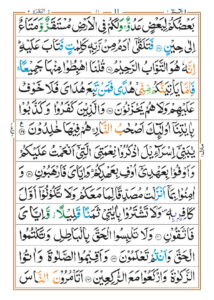 بَعْضُكُمْ لِبَعْضٍ عَدُوٌّ وَلَكُمْ فِي الْاَرْضِ مُسْتَقَرٌّ وَّمَتَاعٌ
اِلٰى حِيْنٍ ۝ فَتَلَقّٰٓى اٰدَمُ مِنْ رَّبِّهٖ كَلِمٰتٍ فَتَابَ عَلَيْهِ
اِنَّهٗ هُوَ التَّوَّابُ الرَّحِيْمُ ۝ قُلْنَا اهْبِطُوْا مِنْهَا جَمِيْعًا
فَاِمَّا يَاْتِيَنَّكُمْ مِّنِّيْ هُدًى فَمَنْ تَبِعَ هُدَايَ فَلَا خَوْفٌ
عَلَيْهِمْ وَلَا هُمْ يَحْزَنُوْنَ ۝ وَالَّذِيْنَ كَفَرُوْا وَكَذَّبُوْا
بِاٰيٰتِنَآ اُولٰٓئِكَ اَصْحٰبُ النَّارِ هُمْ فِيْهَا خٰلِدُوْنَ ۝
يٰبَنِيْٓ اِسْرَآءِيْلَ اذْكُرُوْا نِعْمَتِيَ الَّتِيْٓ اَنْعَمْتُ عَلَيْكُمْ
وَاَوْفُوْا بِعَهْدِيْٓ اُوْفِ بِعَهْدِكُمْ وَاِيَّايَ فَارْهَبُوْنِ ۝ وَ
اٰمِنُوْا بِمَآ اَنْزَلْتُ مُصَدِّقًا لِّمَا مَعَكُمْ وَلَا تَكُوْنُوْٓا اَوَّلَ
كَافِرٍۢ بِهٖ وَلَا تَشْتَرُوْا بِاٰيٰتِيْ ثَمَنًا قَلِيْلًا وَّاِيَّايَ
فَاتَّقُوْنِ ۝ وَلَا تَلْبِسُوا الْحَقَّ بِالْبَاطِلِ وَتَكْتُمُوا
الْحَقَّ وَاَنْتُمْ تَعْلَمُوْنَ ۝ وَاَقِيْمُوا الصَّلٰوةَ وَاٰتُوا
الزَّكٰوةَ وَارْكَعُوْا مَعَ الرّٰكِعِيْنَ ۝ اَتَاْمُرُوْنَ النَّاسَ